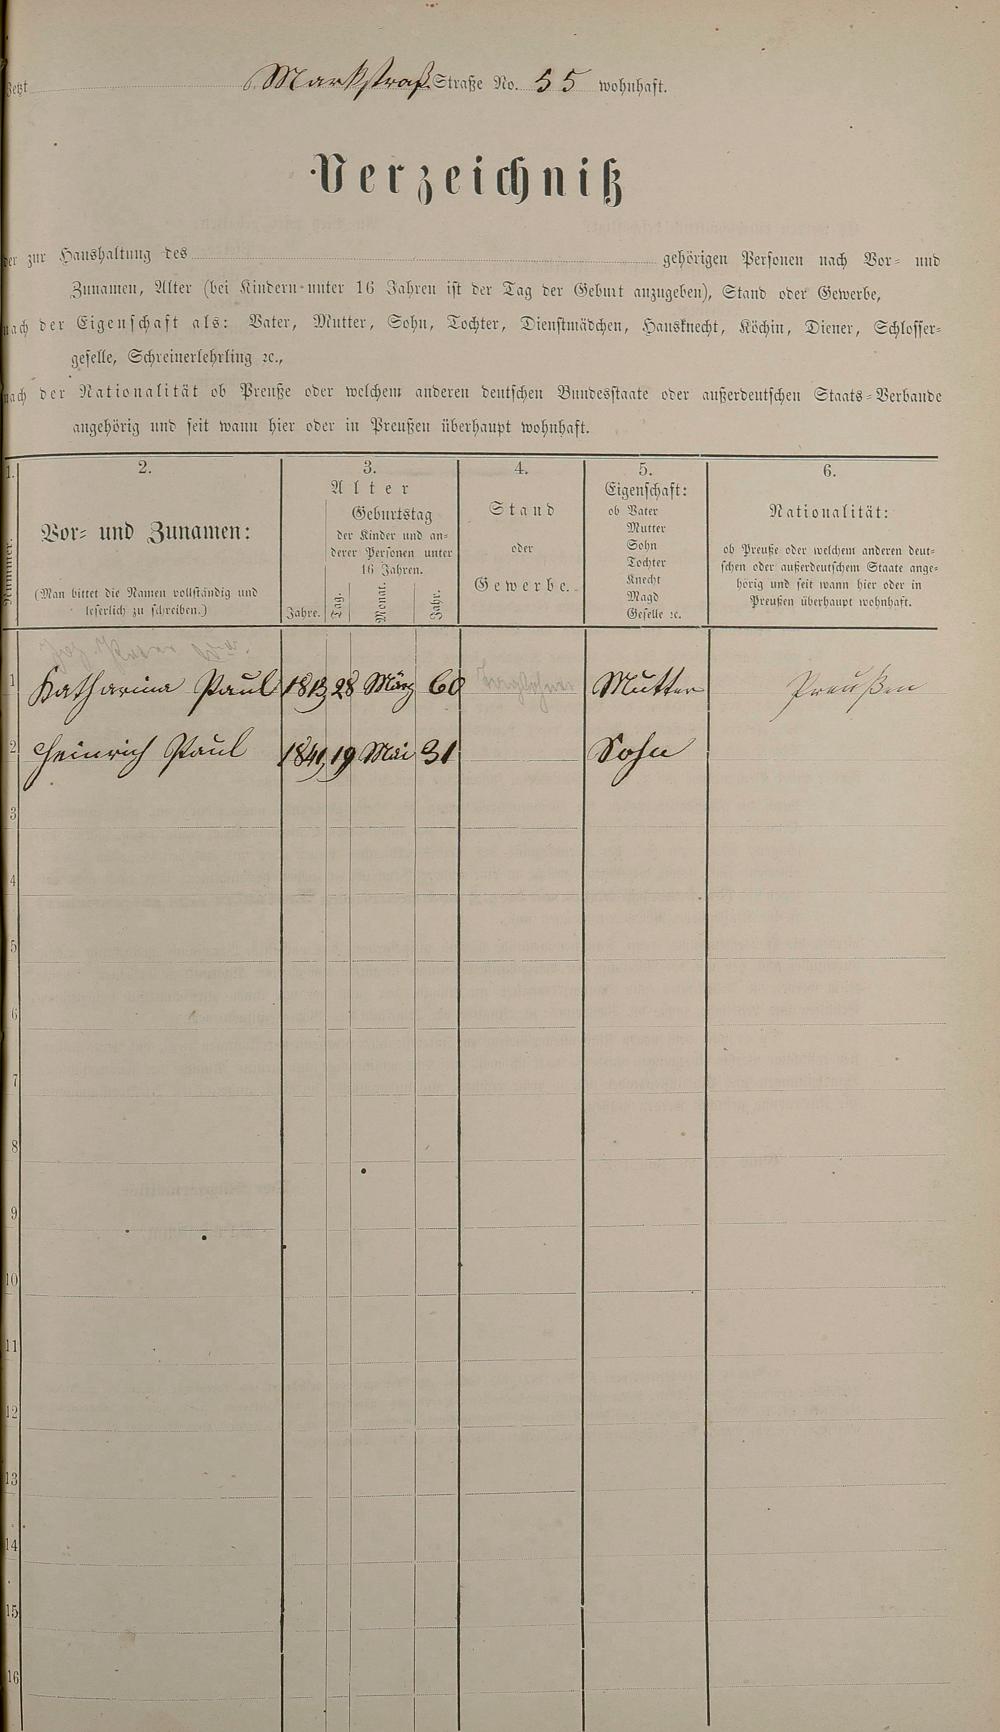 Jetzt Markstraß. Straße No. 55 wohnhaft.
Verzeichniß
der zur Haushaltung des gehörigen Personen nach Vor- und
Zunamen, Alter (bei Kindern unter 16 Jahren ist der Tag der Geburt anzugeben), Stand oder Gewerbe,
nach der Eigenschaft als: Vater, Mutter, Sohn, Tochter, Dienstmädchen, Hausknecht, Köchin, Diener, Schlosser-
geselle, Schreinerlehrling ꝛc.,
nach der Nationalität ob Preuße oder welchem anderen deutschen Bundesstaate oder außerdeutschen Staats-Verbande
angehörig und seit wann hier oder in Preußen überhaupt wohnhaft.
1. 2. 3. 4. 5. 6.
Nummer.
Vor- und Zunamen:
(Man bittet die Namen vollständig und
leserlich zu schreiben.)
Alter
Geburtstag
der Kinder und an-
derer Personen unter
16 Jahren.
Jahre. Tag. Monat. Jahr.
Stand
oder
Gewerbe.
Eigenschaft:
ob Vater
Mutter
Sohn
Tochter
Knecht
Magd
Geselle ꝛc.
Nationalität:
ob Preuße oder welchem anderen deut-
schen oder außerdeutschem Staate ange-
hörig und seit wann hier oder in
Preußen überhaupt wohnhaft.
1 Katharina Paul 1813 28 März 60 Mutter Preußen
2 Heinrich Paul 1841 19 Mai 31 Sohn
3
4
5
6
7
8
9
10
11
12
13
14
15
16